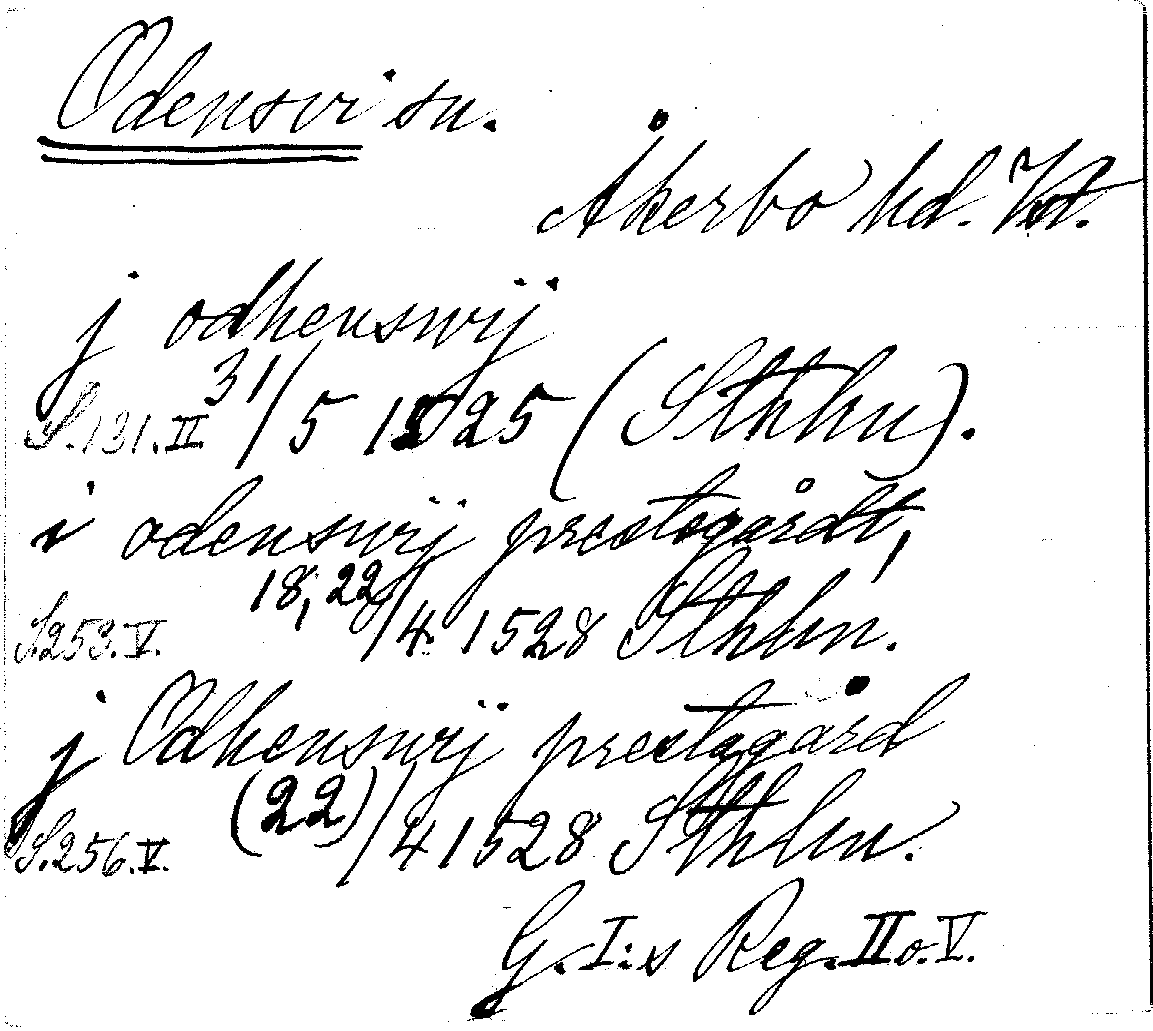 Odensvi sn.
Åkerbo hd. Vstm.
j odhenswij
S. 131. II 31/5 1525 (Sthlm).
i odenswij prestegårdt,
S. 253. V. 18, 22/4 1528 Sthlm.
j Odhenswij prestagård
S. 256. V. (22)/4 1528 Sthlm.
G. I:s Reg. II o. V.